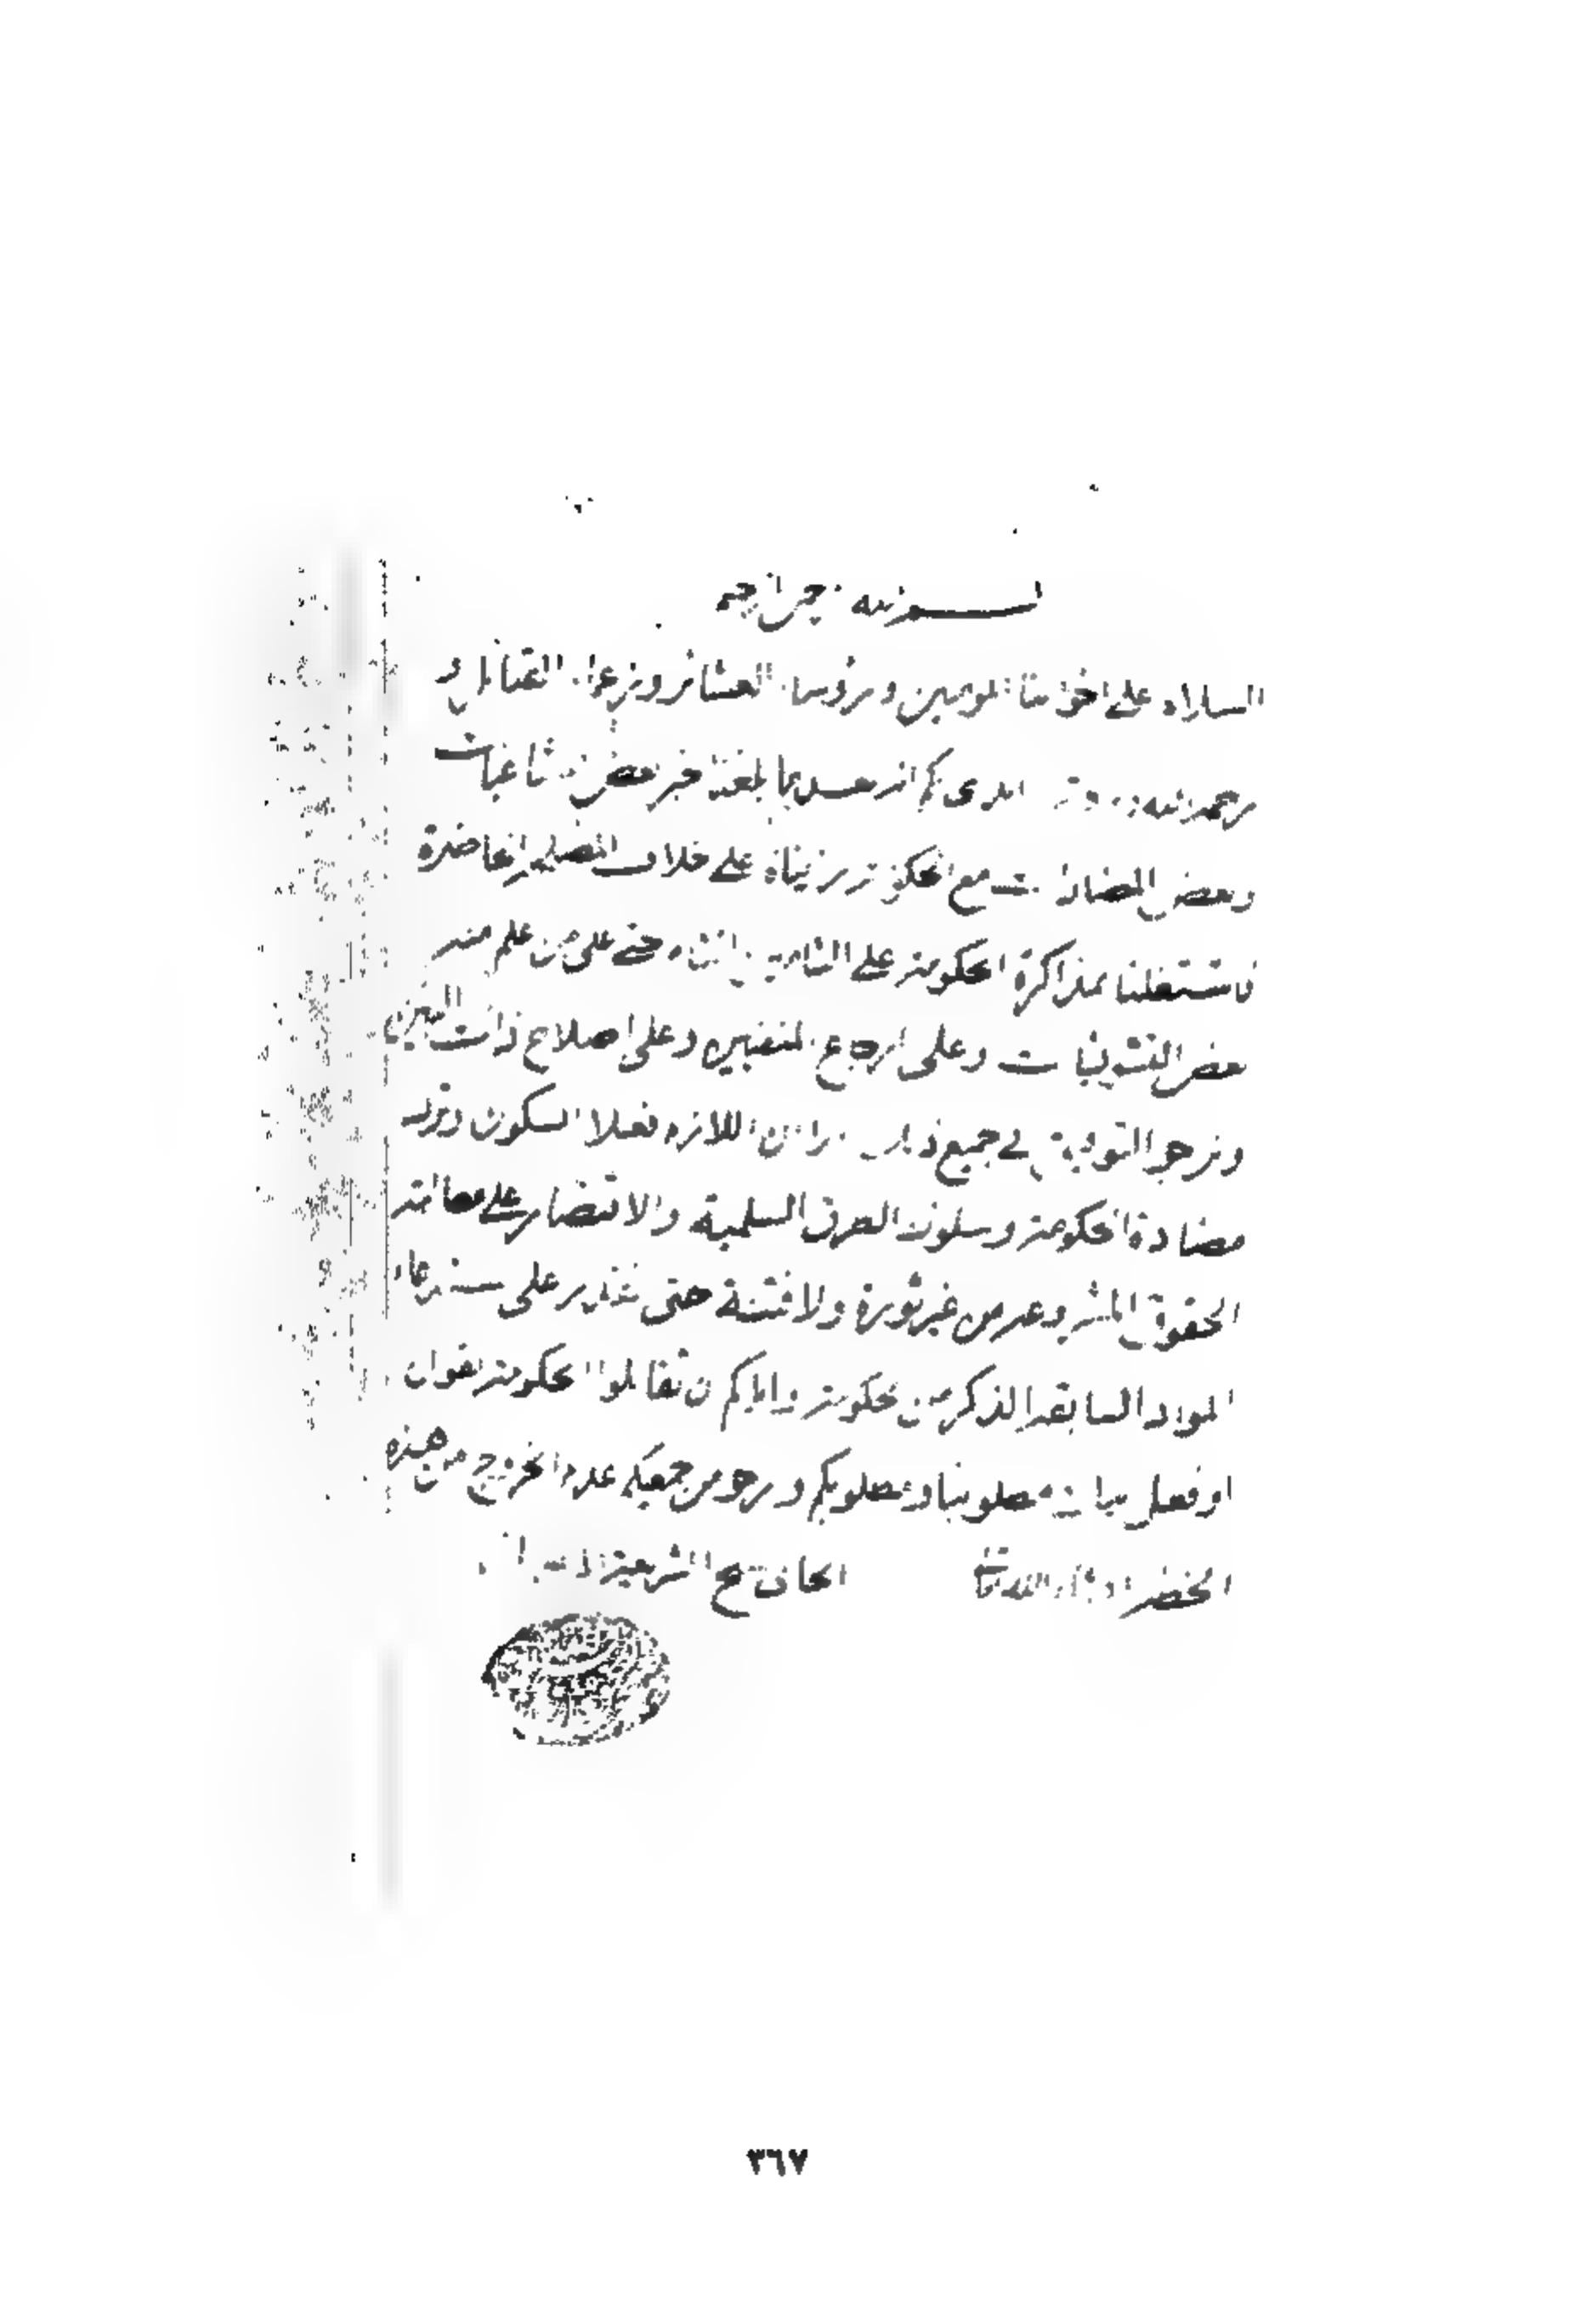 بسم الله الرحمن الرحيم
السلام على اخواننا المؤمنين ورؤساء العشائر وزعماء القبائل و
رحمة الله وبركاته لا بلغنا خبر بعض مشاغبات
وبعض المضادات مع الحكومة على خلاف
فاشتغلنا بمذاكرة الحكومة على التامين حتى على من علم منه
بعض التشويقات وعلى ارجاع المنفيين وعلى اصلاح ذات البين
ونرجو التوفيق في جميع ذلك اللازم فعلا السكون وترك
مضادة الحكومة وسلوك الطرق السلمية والاقتصار على مطالبة
الحقوق المشروعة من غير ثورة ولا فتنة حتى نقدر على استدعاء
المواد السابقة الذكر من الحكومة واياكم ان تقابلوا الحكومة بقول
او فعل مطلوبنا ومطلوبكم ونرجو من جميعكم عدم الخروج من هذه
الخطة ان شاء الله تعالى الجاني شيخ الشريعة
٣٦٧